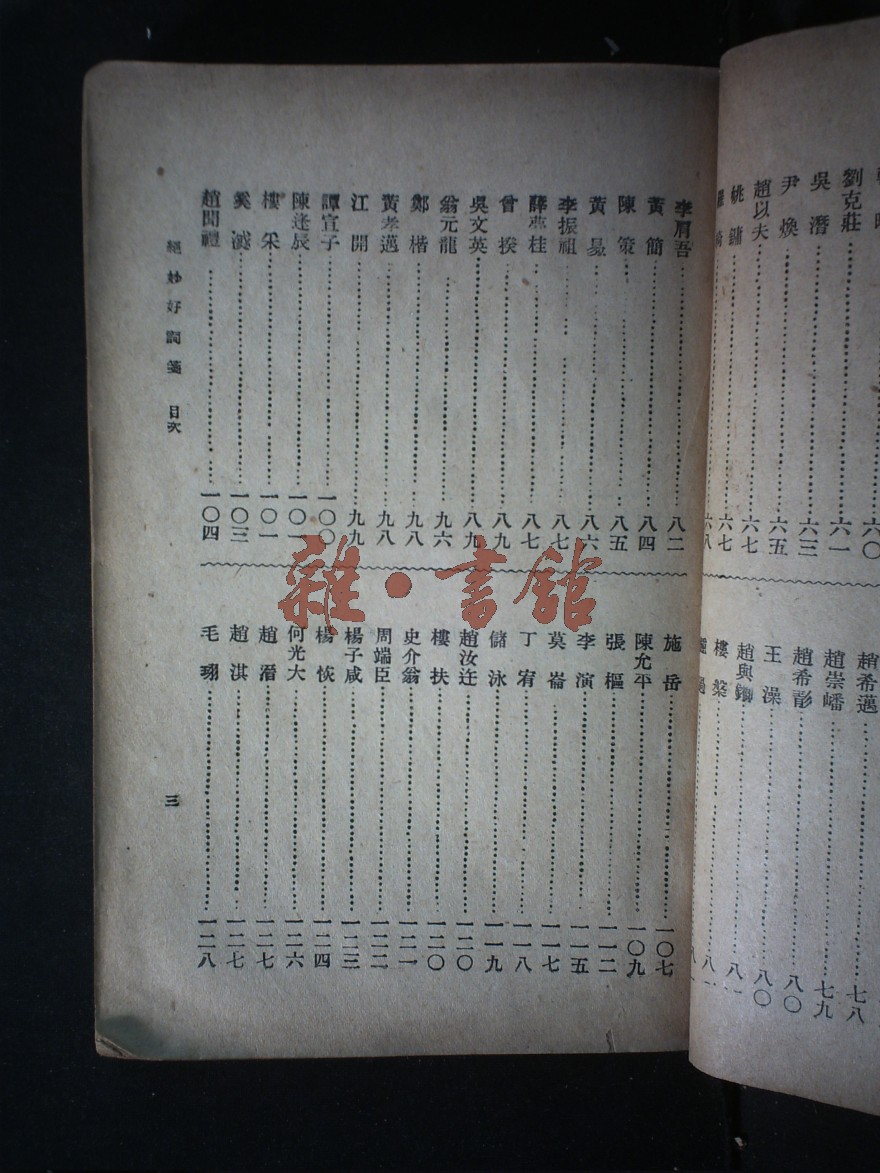 六〇
劉克莊 六一
吳 潛 六三
尹 煥 六五
趙以夫 六七
姚 鏞 六七
六八
趙希邁 七八
趙崇嶓 七九
趙希 八〇
王 澡 八〇
趙與
樓 槃 八
李肩吾 八二
黃 簡 八四
陳 策 八五
黃 昇 八六
李振祖 八七
薛夢桂 八七
曾 揆 八九
吳文英 八九
翁元龍 九六
鄭 楷 九八
黃孝邁 九八
江 開 九九
譚宣子 一〇〇
陳逢辰 一〇一
樓 采 一〇一
奚 㴒 一〇三
趙聞禮 一〇四
施 岳 一〇七
陳允平 一〇九
張 樞 一一二
李 演 一一五
莫 崙 一一七
丁 宥 一一八
儲 泳 一一九
趙汝迕 一二〇
樓 扶 一二〇
史介翁 一二一
周端臣 一二二
楊子咸 一二三
楊 恢 一二四
何光大 一二六
趙 溍 一二七
趙 淇 一二七
毛 珝 一二八
絕妙好詞箋 目次
三
雜·書館